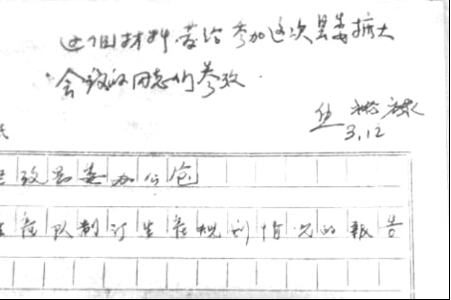 这个材料荐给参加这次县委扩大
会议的同志们参改.
3.12
改县委办公包
产队制订生产规划情况的报告